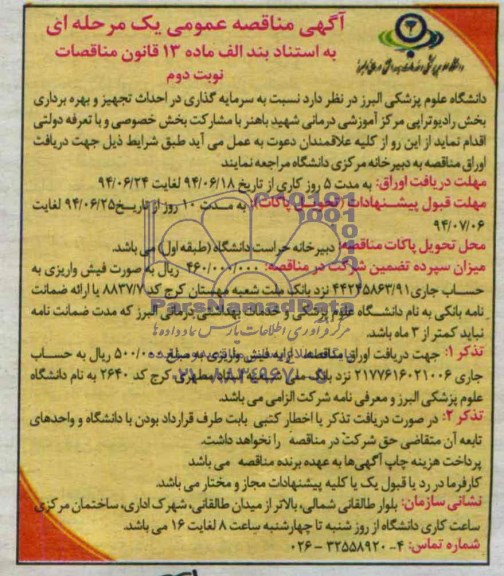 آگهی مناقصه عمومی یک مرحله ای
به استناد بند الف ماده ۱۳ قانون مناقصات
نوبت دوم
دانشگاه علوم پزشکی البرز در نظر دارد نسبت به سرمایه گذاری در احداث تجهیز و بهره برداری
بخش رادیوتراپی مرکز آموزشی درمانی شهید باهنر با مشارکت بخش خصوصی و با تعرفه دولتی
اقدام نماید از این رو از کلیه علاقمندان دعوت به عمل می آید طبق شرایط ذیل جهت دریافت
اوراق مناقصه به دبیرخانه مرکزی دانشگاه مراجعه نمایند
مهلت دریافت اوراق: به مدت ۵ روز کاری از تاریخ ۹۴/۰۶/۱۸ لغایت ۹۴/۰۶/۲۴
مهلت قبول پیشنهادات (تحویل پاکات): به مدت ۱۰ روز از تاریخ ۹۴/۰۶/۲۵ لغایت
۹۴/۰۷/۰۶
محل تحویل پاکات مناقصه: دبیرخانه حراست دانشگاه (طبقه اول) می باشد.
میزان سپرده تضمین شرکت در مناقصه: ۴۶۰/۰۰۰/۰۰۰ ریال به صورت فیش واریزی به
حساب جاری ۴۴۲۴۵۸۶۳/۹۱ نزد بانک ملت شعبه مهستان کرج کد ۸۸۳۷/۷ یا ارائه ضمانت
نامه بانکی به نام دانشگاه علوم پزشکی و خدمات بهداشتی درمانی البرز که مدت ضمانت نامه
نباید کمتر از ۳ ماه باشد.
تذکر ۱: جهت دریافت اوراق مناقصه ارایه فیش واریزی به مبلغ ۵۰۰/۰۰۰ ریال به حساب
جاری ۲۱۷۷۶۱۶۰۲۱۰۰۶ نزد بانک ملی مطهری کرج کد ۲۶۴۰ به نام دانشگاه
علوم پزشکی البرز و معرفی نامه شرکت الزامی می باشد.
تذکر ۲: در صورت دریافت تذکر یا اخطار کتبی بابت طرف قرارداد بودن با دانشگاه و واحدهای
تابعه آن متقاضی حق شرکت در مناقصه را نخواهد داشت.
پرداخت هزینه چاپ آگهی ها به عهده برنده مناقصه می باشد
کارفرما در رد یا قبول یک یا کلیه پیشنهادات مجاز و مختار می باشد.
نشانی سازمان: بلوار طالقانی شمالی، بالاتر از میدان طالقانی، شهرک اداری، ساختمان مرکزی
ساعت کاری دانشگاه از روز شنبه تا چهارشنبه ساعت ۸ لغایت ۱۶ می باشد.
شماره تماس: ۴-۳۲۵۵۸۹۲۰ - ۰۲۶
ParsNamadData
مرکز فرآوری اطلاعات پارس نماد داده ها
۰۲۱-۸۸۳۴۹۶۷۰-۵